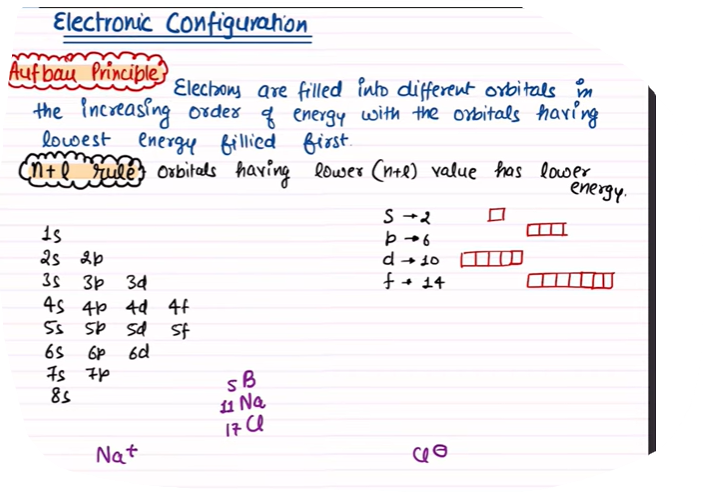 Electronic Configuration
Aufbau Principle
Electrons are filled into different orbitals in
the increasing order of energy with the orbitals having
lowest energy fillied first.
n+l rule orbitals having lower (n+l) value has lower
energy.
s → 2
p → 6
d → 10
f → 14
1s
2s 2p
3s 3p 3d
4s 4p 4d 4f
5s 5p 5d 5f
6s 6p 6d
7s 7p
8s
5 B
11 Na
17 Cl
Na+
Cl⊖